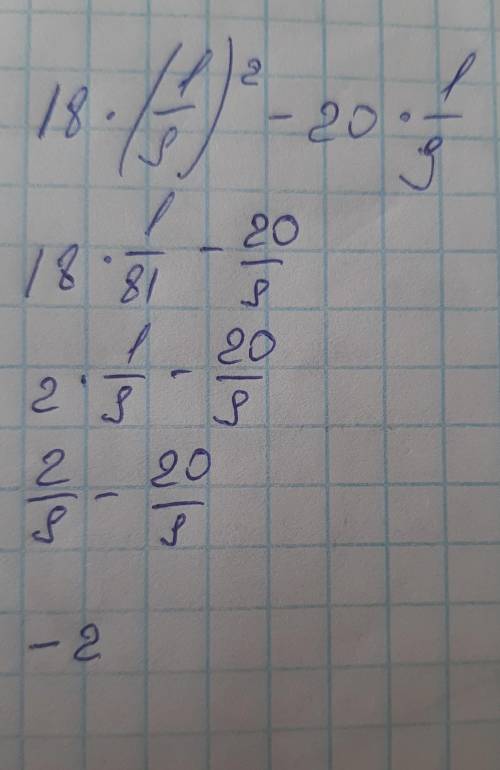 18 · (1/9)² - 20 · 1/9
18 · 1/81 - 20/9
2 · 1/9 - 20/9
2/9 - 20/9
- 2